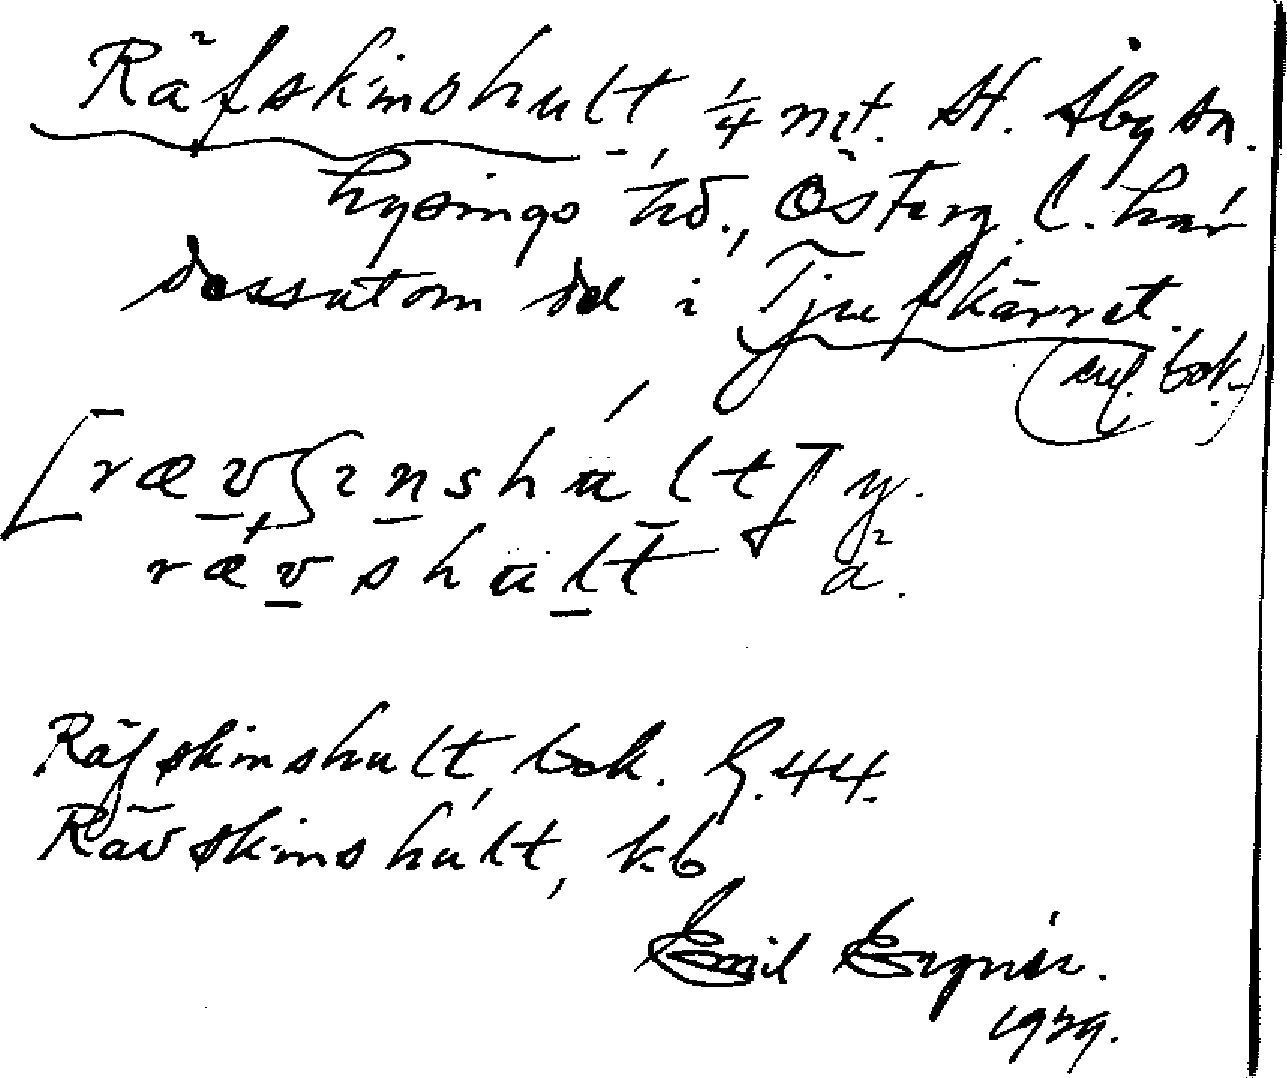 Räfskinshult, ¼ mt. St. Åby sn.
Lysings hd., Österg. l. har
dessutom del i Tjufkärret.
(enl. bok.)
[rævʃɪnshult] y.
rævshult ä.
Räfskinshult, bok. G. 44.
Rävskinshult, kb
Emil
1929.